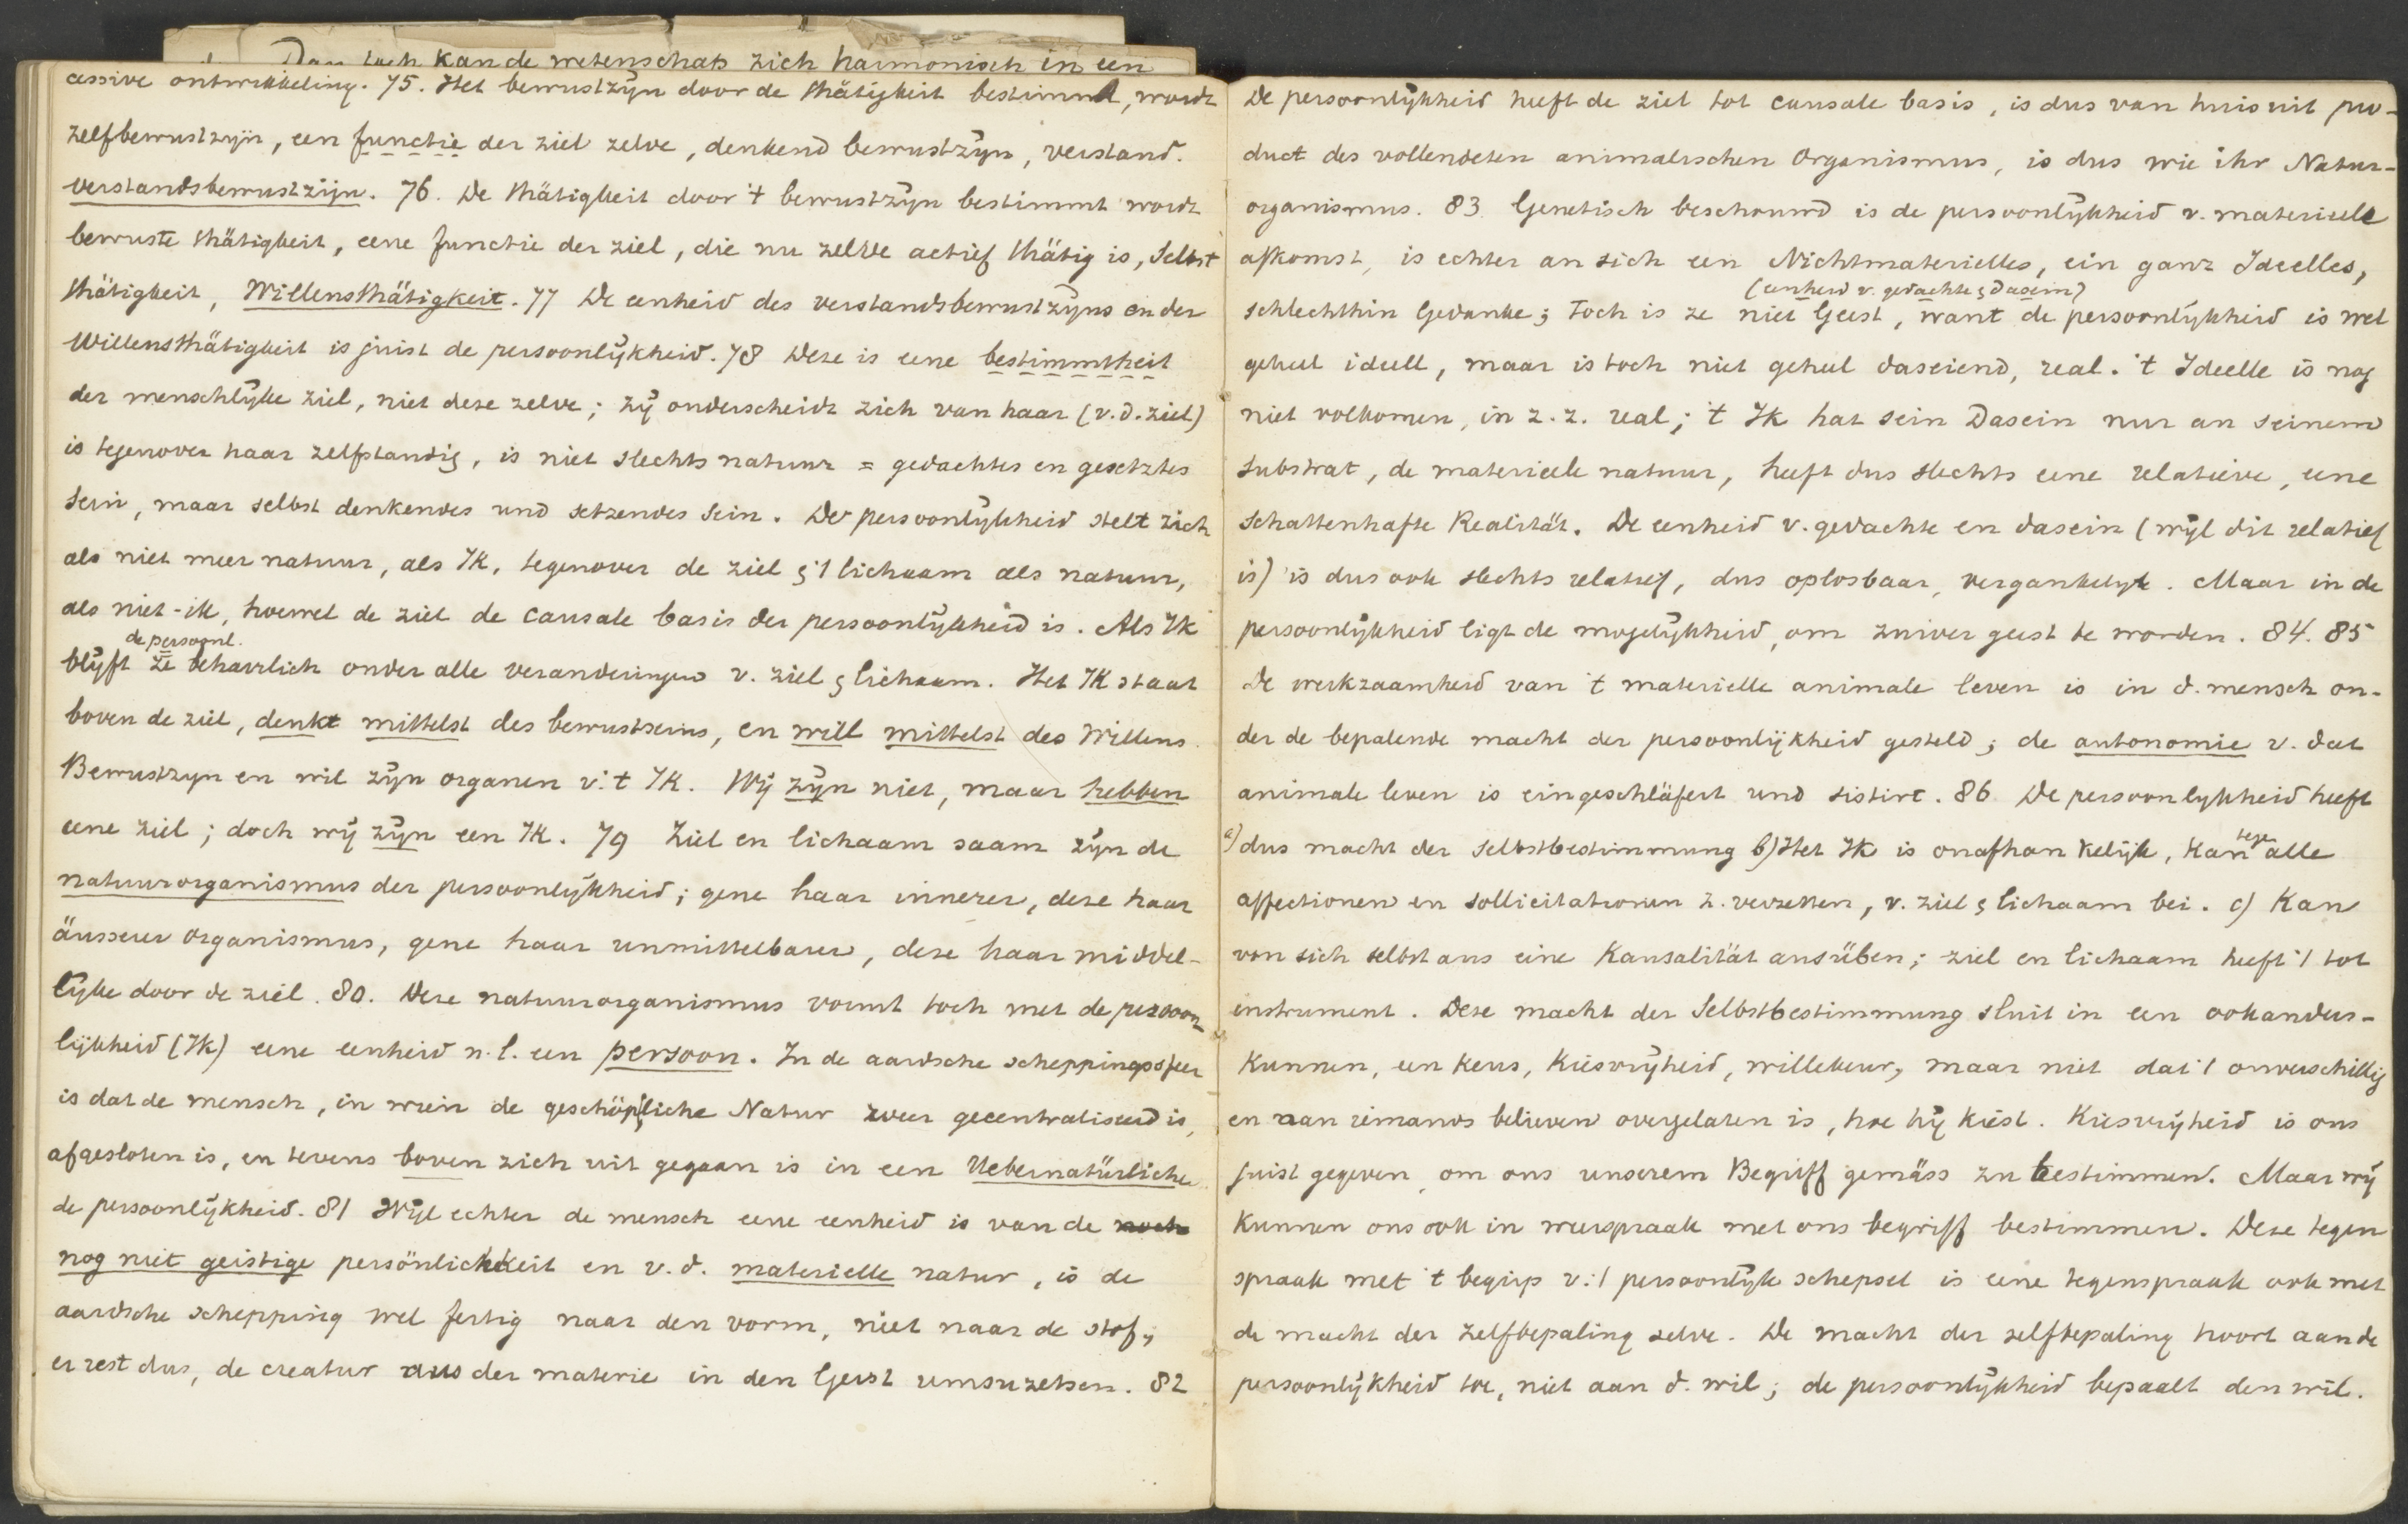 Dan toch kan de wetenschap zich harmonisch in een
cessive ontwikkeling. 75. Het bewustzijn door de thätigkeit bestimmt, wordt
zelfbewustzijn, een functie der ziel zelve, denkend bewustzijn, verstand.
verstandsbewustzijn. 76. De thätigkeit door 't bewustzijn bestimmt wordt
bewuste thätigkeit, eene functie der ziel, die nu zelve actief thätig is, Selbst
thätigkeit, Willensthätigkeit. 77 De eenheid des verstandsbewustzijns en der
Willensthätigkeit is juist de persoonlijkheid. 78 Deze is eene bestimmtheit
der menschlijke ziel, niet deze zelve; zij onderscheidt zich van haar (v.d. ziel)
is tegenover haar zelfstandig, is niet slechts natuur = gedachtes en gesetztes
Sein, maar selbst denkendes und setzendes Sein. De persoonlijkheid stelt zich
als niet meer natuur, als Ik, tegenover de ziel & 't lichaam als natuur,
als niet-ik, hoewel de ziel de causale basis der persoonlijkheid is. Als Ik
de persoonl.
blijft ze beharrlich onder alle veranderingen v. ziel & lichaam. Het Ik staat
boven de ziel, denkt mittelst des bewustseins, en will mittelst des Willens.
Bewustzijn en wil zijn organen v. 't Ik. Wij zijn niet, maar hebben
eene ziel; doch wij zijn een Ik. 79 Ziel en lichaam saam zijn de
natuurorganismus der persoonlijkheid; gene haar innerer, deze haar
äusserer organismus, gene haar unmittelbarer, deze haar middel-
lijke door de ziel. 80. Deze natuurorganismus vormt toch met de persoon-
lijkheid (Ik) eene eenheid n.l. een persoon. In de aardsche scheppingssfeer
is dat de mensch, in wien de geschöpfliche Natur zweer gecentraliseerd is,
afgesloten is, en tevens boven zich uit gegaan is in een Uebernatürliche
de persoonlijkheid. 81 Wijl echter de mensch eene eenheid is van de noch
nog niet geistige persönlichkeit en v.d. materielle natur, is de
aardsche schepping wel fertig naar den vorm, niet naar de stof;
er rest dus, de creatur aus der materie in den Geist umsuzetsen. 82
De persoonlijkheid heeft de ziel tot causale basis, is dus van huis uit pro-
duct des vollendeten animalischen Organismus, is dus wie ihr Natur-
organismus. 83. Genetisch beschouwd is de persoonlijkheid v. materieele
afkomst, is echter an sich een Nichtmaterielles, ein ganz Ideelles,
(eenheid v. gedachte & dasein)
schlechthin Gedanke; Toch is ze niet Geest, want de persoonlijkheid is wel
geheel ideell, maar is toch niet geheel daseiend, real. 't Ideelle is nog
niet volkomen, in z.z. real; 't Ik hat sein Dasein nur an seinem
Substrat, de materieele natuur, heeft dus slechts eene relatieve, eene
schattenhafte Realität. De eenheid v. gedachte en dasein (wijl dit relatief
is) is dus ook slechts relatief, dus oplosbaar, vergankelijk. Maar in de
persoonlijkheid ligt de mogelijkheid, om zuiver geest te worden. 84. 85
De werkzaamheid van 't materielle animale leven is in d. mensch on-
der de bepalende macht der persoonlijkheid gesteld; de autonomie v. dat
animale leven is eingeschläfert und sistirt. 86 De persoonlijkheid heeft
a) dus macht der Selbstbestimmung b) Het Ik is onafhankelijk, kan tege alle
affectionen en sollicitationen z. verzetten, v. ziel & lichaam bei. c) Kan
von sich selbst aus eine Kausalität ausüben; ziel en lichaam heeft 't tot
instrument. Deze macht der Selbstbestimmung sluit in een ookanders-
kunnen, een keus, kiesvrijheid, willekeur, maar niet dat 't onverschillig
en aan iemands believen overgelaten is, hoe hij kiest. Kiesvrijheid is ons
juist gegeven, om ons unserem Begriff gemäss zu bestimmen. Maar wij
kunnen ons ook in weerspraak met ons begriff bestimmen. Deze tegen
spraak met 't begrip v. 't persoonlijk schepsel is eene tegenspraak ook met
de macht der zelfbepaling selve. De macht der selfbepaling hoort aan de
persoonlijkheid toe, niet aan d. wil; de persoonlijkheid bepaalt den wil.